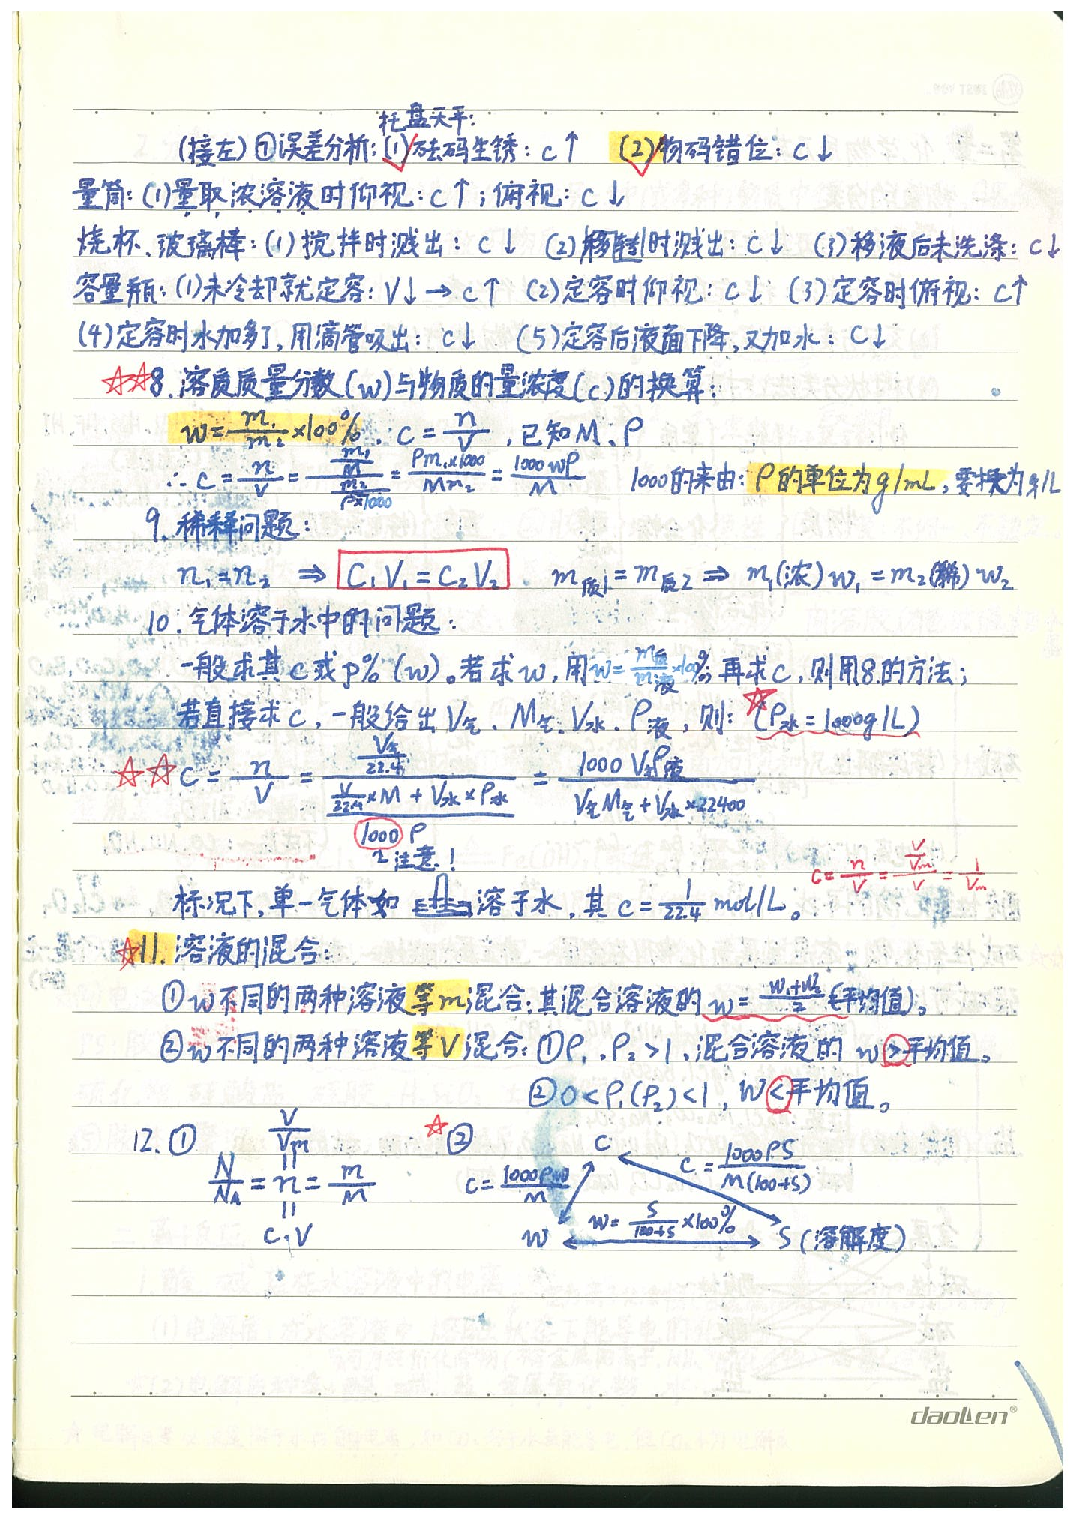 托盘天平:
(接左)⑦误差分析:(1)砝码生锈:c↑ (2)物码错位:c↓
量筒:(1)量取浓溶液时仰视:c↑;俯视:c↓
烧杯、玻璃棒:(1)搅拌时溅出:c↓ (2)移时溅出:c↓ (3)移液后未洗涤:c↓
容量瓶:(1)未冷却就定容:V↓→c↑ (2)定容时仰视:c↓ (3)定容时俯视:c↑
(4)定容时水加多了,用滴管吸出:c↓ (5)定容后液面下降,又加水:c↓
☆☆8.溶质质量分数(w)与物质的量浓度(c)的换算:
w=m₁/m₂×100% ∵c=n/V,已知M、ρ
∴c=n/V=(m₁/M)/(m₂/(ρ×1000))=ρm₁×1000/Mm₂=1000wρ/M 1000的来由:ρ的单位为g/mL,要换为g/L
9.稀释问题:
n₁=n₂ ⇒ C₁V₁=C₂V₂. m质1=m质2 ⇒ m₁(浓)w₁=m₂(稀)w₂
10.气体溶于水中的问题:
一般求其c或p%(w)。若求w,用w=m质/m液×100%,再求c,则用8.的方法;
若直接求c,一般给出V气、M气、V水、ρ液,则:☆(ρ水=1000g/L)
☆☆c=n/V=(V气/22.4)/((V/22.4×M+V水×ρ水)/1000ρ)=1000V气ρ液/(V气M气+V水×22400)
注意!
c=n/V=(V/Vm)/V=1/Vm
标况下,单一气体如溶于水,其c=1/22.4 mol/L。
☆11.溶液的混合:
①w不同的两种溶液等m混合:其混合溶液的w=(w₁+w₂)/2(平均值)。
②w不同的两种溶液等V混合:①ρ₁、ρ₂>1,混合溶液的w>平均值。
②0<ρ₁(ρ₂)<1,w<平均值。
12.① V/Vm ☆② c
N/NA=n=m/M c=1000ρw/M c=1000ρS/M(100+S)
c·V w w=S/(100+S)×100% S(溶解度)
daolen®